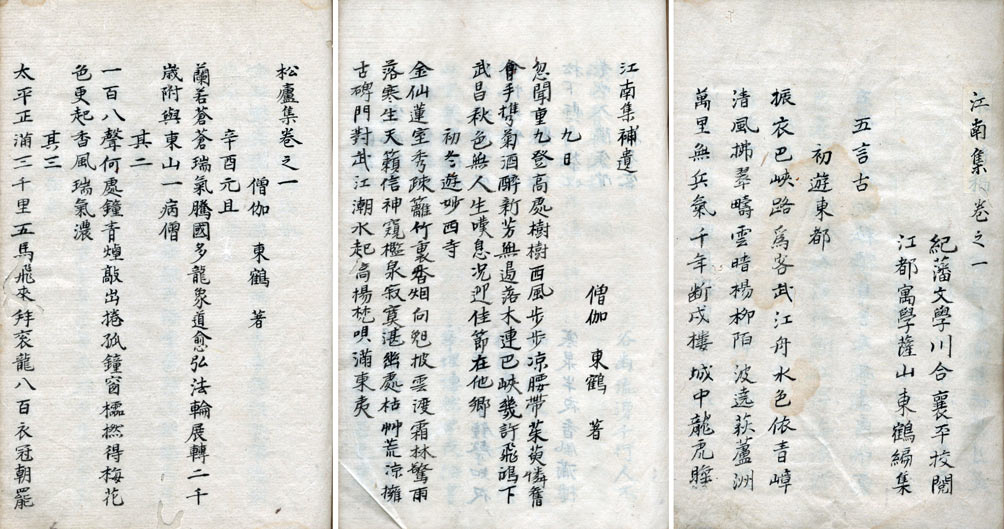 江南集卷之一
紀藩文學川合襄平挍閲
江都寓學薩山東鶴編集
五言古
初遊東都
振衣巴峽路爲客武江舟水色依青嶂
清風拂翠疇雲暗楊柳陌波遶荻蘆洲
萬里無兵氣千年断戍樓城中龍虎睡
江南集補遺
僧伽 東鶴 著
九日
忽聞重九登高處樹樹西風步步凉腰帶茱萸憐舊
會手携菊酒醉新芳無邊落木連巴峽幾許飛鴻下
武昌秋色無人生嘆息况迎佳節在他鄉
初冬遊妙西寺
金仙蓮室秀疎籬竹裏香烟向披雲渡霜林驚雨
落寒生天籟信神窺檻泉寂寞湛幽處枯艸荒凉擁
古碑門對武江潮水起高揚梵唄滿東夷
松廬集卷之一
僧伽 東鶴 著
辛酉元旦
蘭若蒼蒼瑞氣騰國多龍象道愈弘法輪展轉二千
歳附與東山一病僧
其二
一百八聲何處鐘青敲出捲孤鐘窗櫺撚得梅花
色更起香風瑞氣濃
其三
太平正滿三千里五馬飛來拜衮龍八百衣冠朝罷